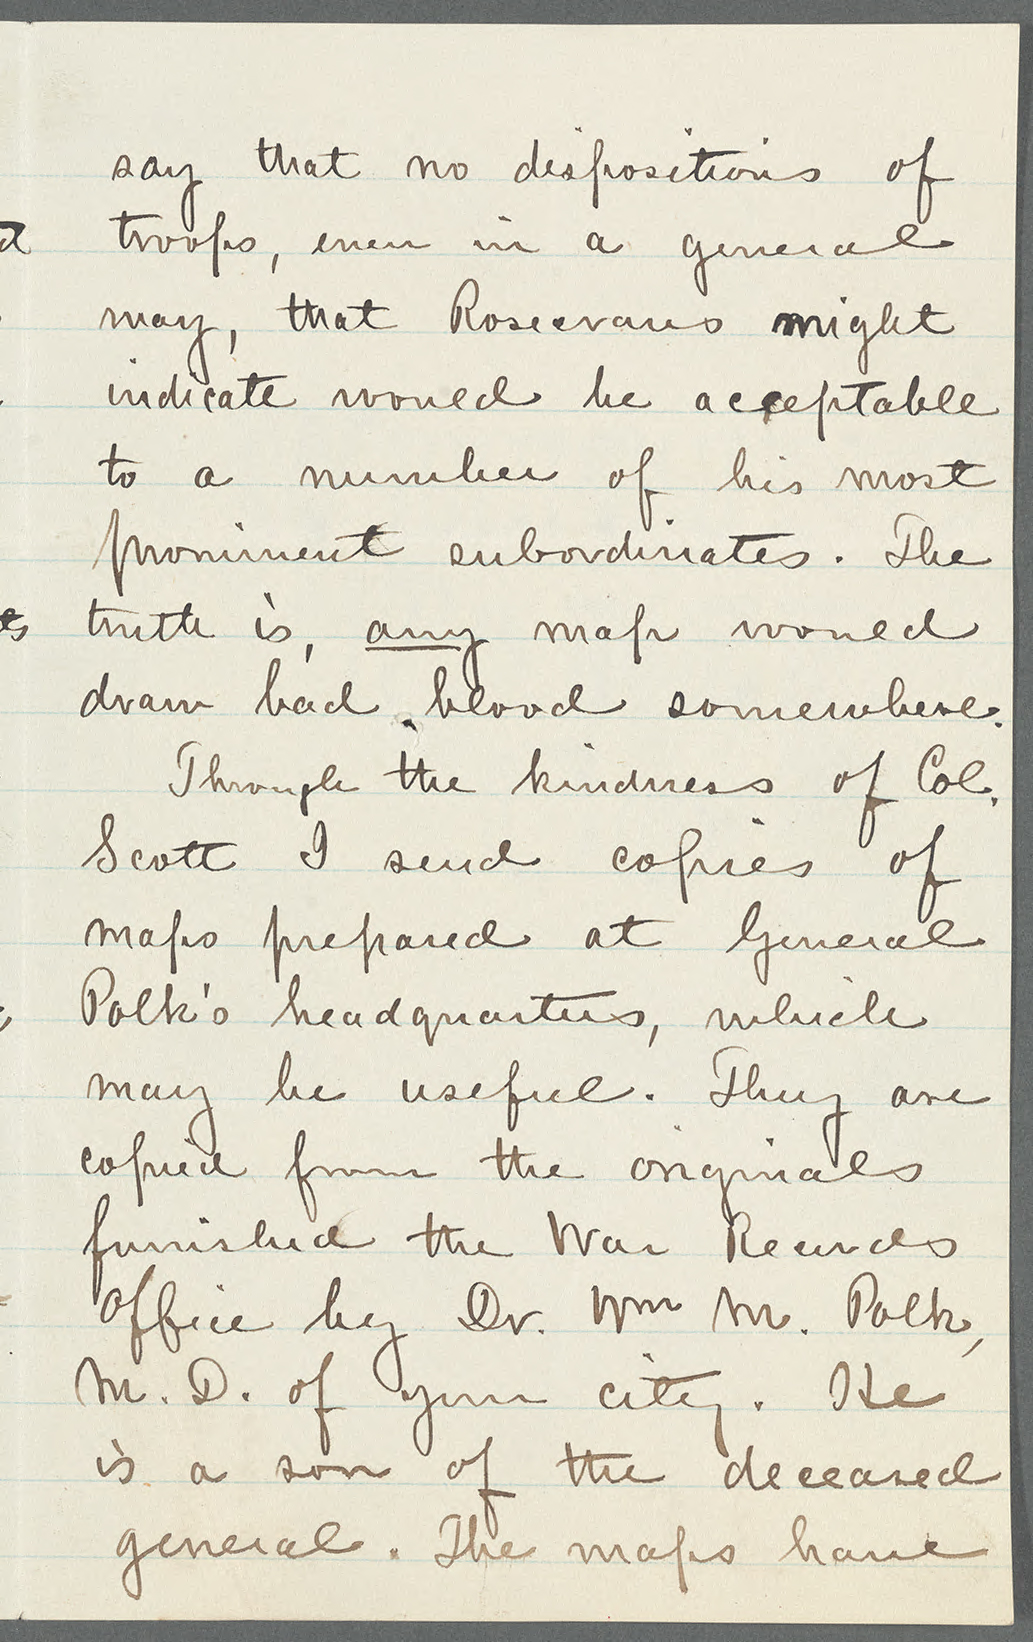 say that no dispositions of
troops, even in a general
way, that Rosecrans might
indicate would be acceptable
to a number of his most
prominent subordinates. The
truth is, any map would
draw bad blood somewhere.
Through the kindness of Col.
Scott I send copies of
maps prepared at General
Polk's headquarters, which
may be useful. They are
copied from the originals
furnished the War Records
Office by Dr. Wm M. Polk,
M. D. of your city. He
is a son of the deceased
general. The maps have